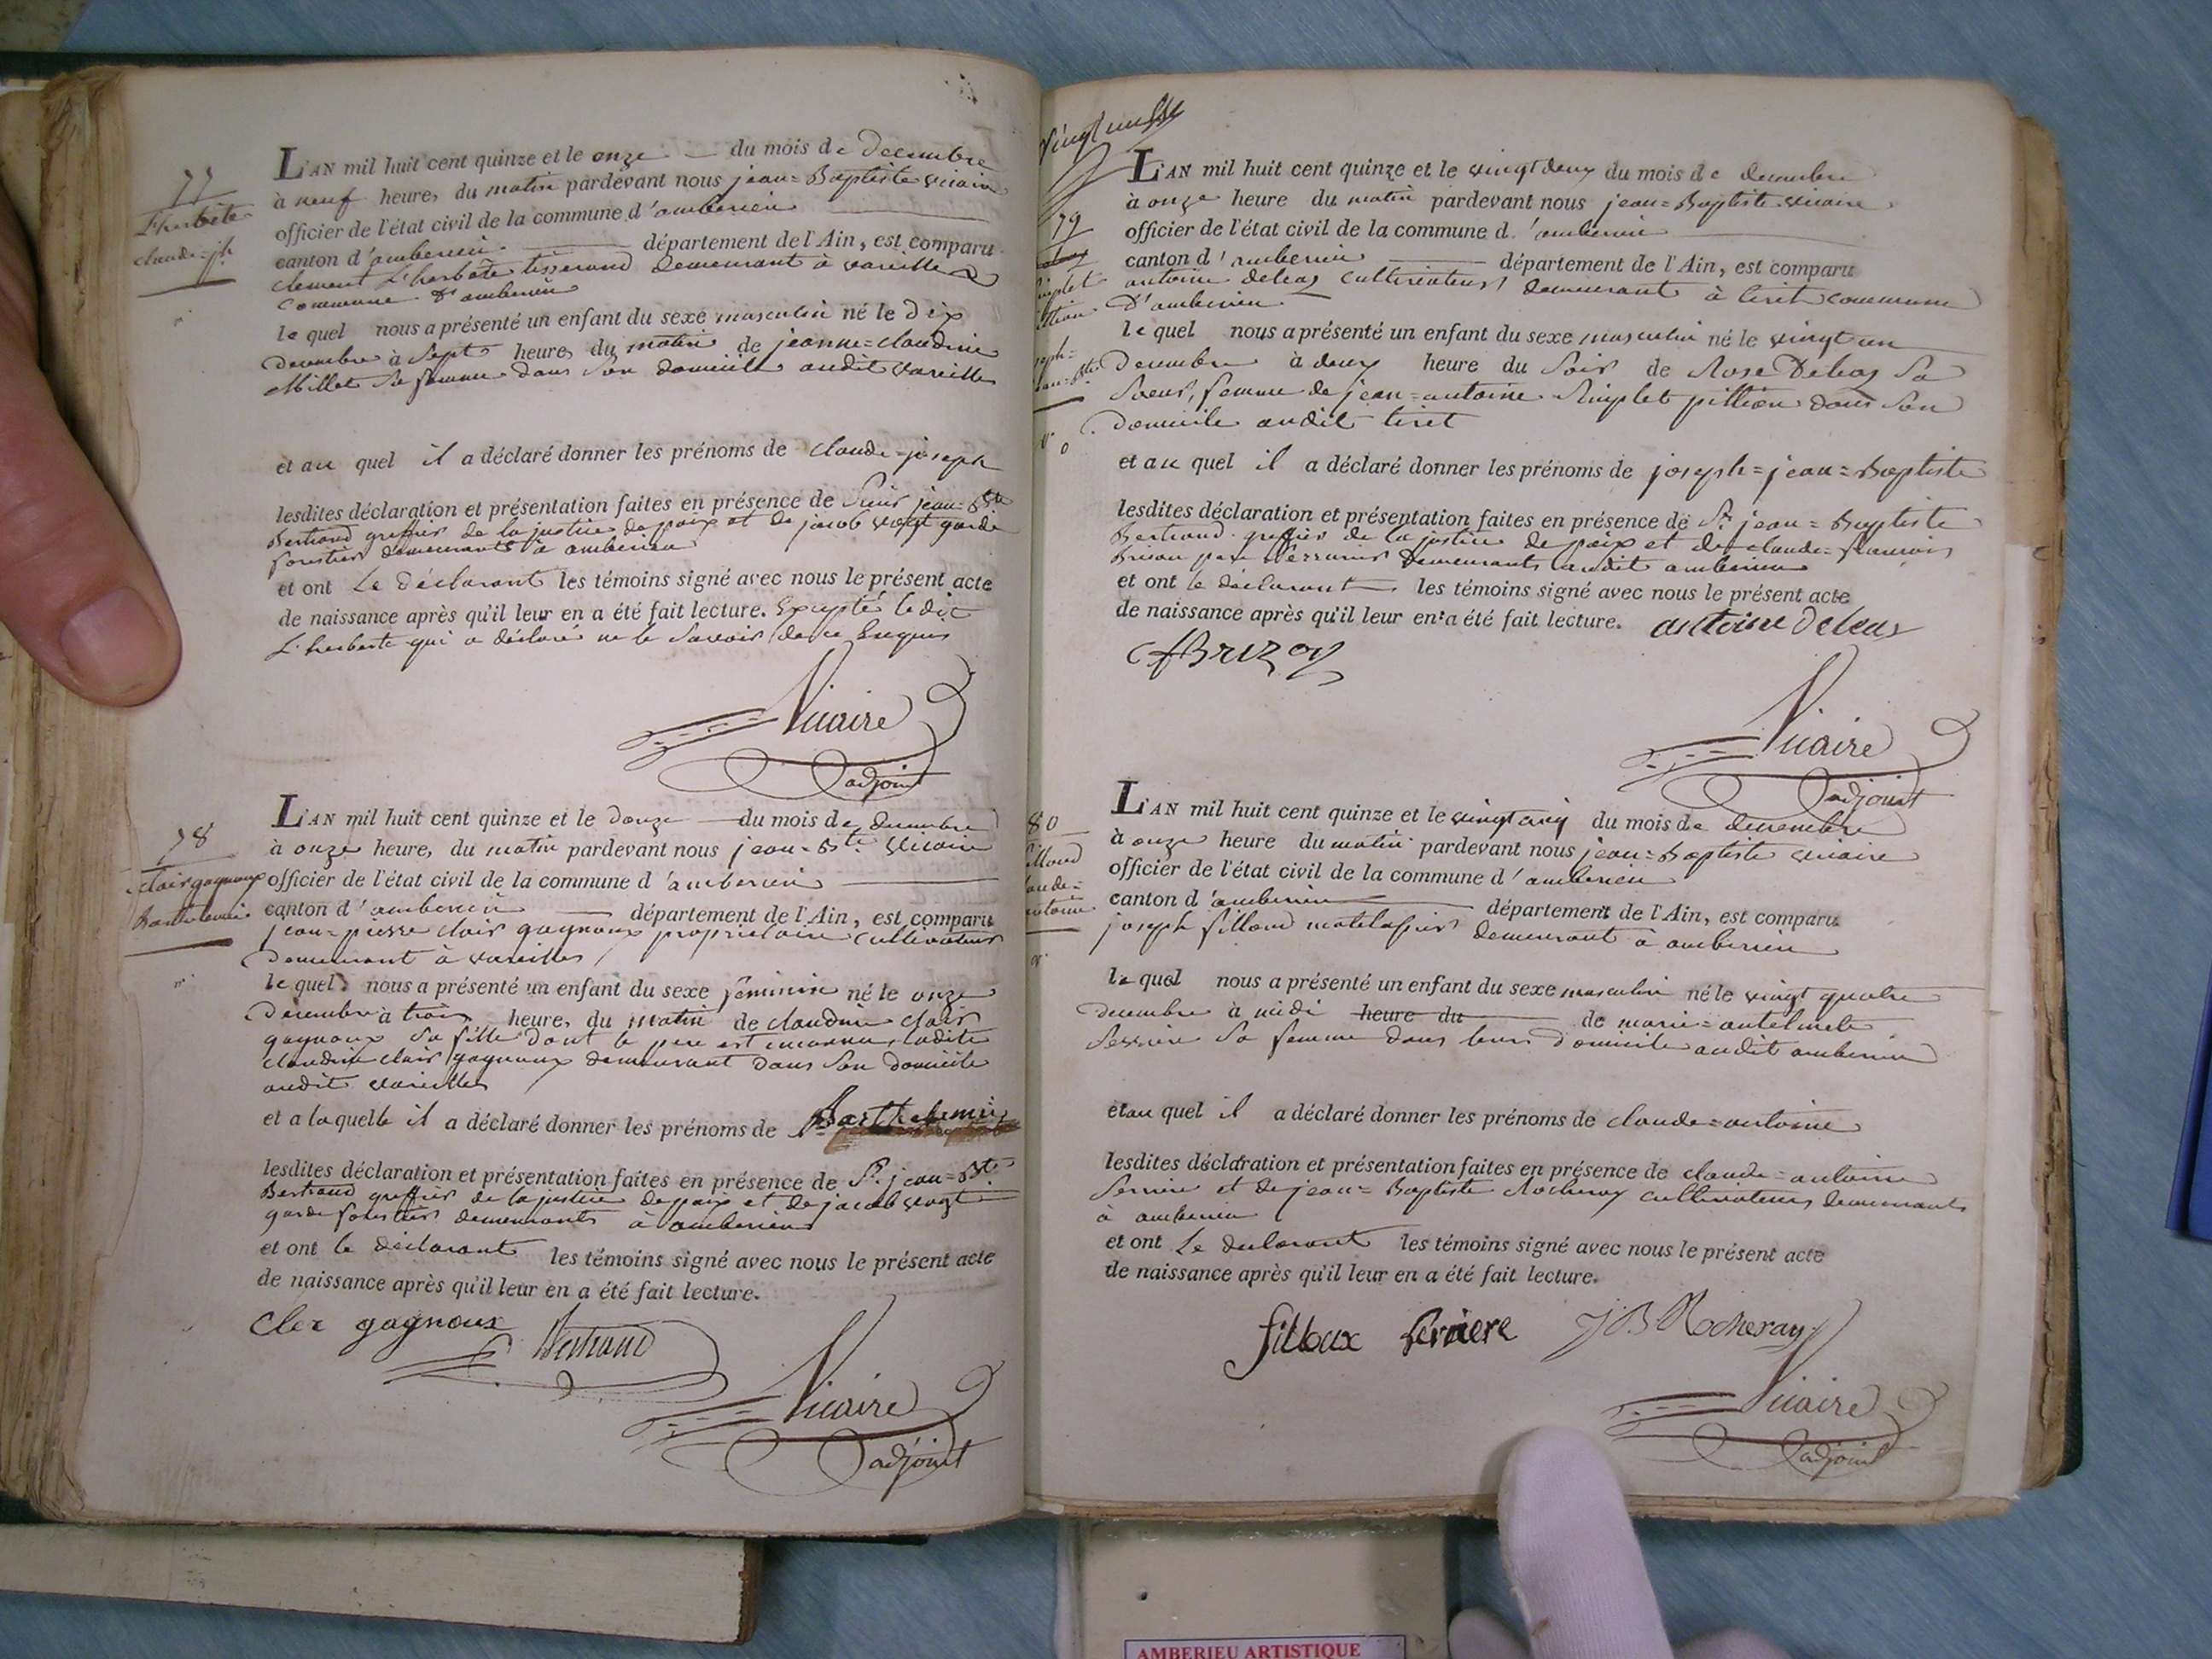 77
L'herbête
claude=jh
L'AN mil huit cent quinze et le onze du mois de Decembre
à neuf heures du matin pardevant nous jean=Baptiste vicaire
officier de l'état civil de la commune d'amberieu
canton d'amberieu département de l'Ain, est comparu
clement L'herbête tisserand demeurant à vareilles
commune d'amberieu
le quel nous a présenté un enfant du sexe masculin né le dix
decembre à sept heures du matin de jeanne=claudine
Millet sa femme dans son domicile audit vareilles
et au quel il a déclaré donner les prénoms de claude=joseph
lesdites déclaration et présentation faites en présence de Sieur jean=Bte
Bertrand greffier de la justice de paix et de jacob vogt garde
forestier demeurants à amberieu
et ont Le déclarant les témoins signé avec nous le présent acte
de naissance après qu'il leur en a été fait lecture. Excepté le dit
L'herbete qui a déclaré ne le savoir de ce enquis
Vicaire
adjoint
78
clair gagnoux
Barthelemie
L'AN mil huit cent quinze et le douze du mois de decembre
à onze heures du matin pardevant nous jean=Bte vicaire
officier de l'état civil de la commune d'amberieu
canton d'amberieu département de l'Ain, est comparu
jean=pierre clair gagnoux proprietaire cultivateur
demeurant à vareilles
le quel nous a présenté un enfant du sexe féminin né le onze
decembre à trois heures du matin de claudine clair
gagnoux sa fille dont le pere est inconnu, ladite
claudine clair gagnoux demeurant dans son domicile
audit vareilles
et a laquelle il a déclaré donner les prénoms de Barthelemie
lesdites déclaration et présentation faites en présence de Sr. jean=Bte
Bertrand greffier de la justice de paix et de jacob vogt
garde forestier demeurants à amberieu
et ont le déclarant les témoins signé avec nous le présent acte
de naissance après qu'il leur en a été fait lecture.
Cler gagnoux
Bertrand
Vicaire
adjoint
79
L'AN mil huit cent quinze et le vingt deux du mois de decembre
à onze heure du matin pardevant nous jean=Baptiste vicaire
officier de l'état civil de la commune d'amberieu
canton d'amberieu département de l'Ain, est comparu
antoine deleaz cultivateur demeurant à tiret commune
D'amberieu
le quel nous a présenté un enfant du sexe masculin né le vingt un
Decembre à deux heure du soir de Rose Deleaz sa
soeur, femme de jean=antoine Simplet pittion dans son
domicile audit tiret
et au quel il a déclaré donner les prénoms de joseph=jean=Baptiste
lesdites déclaration et présentation faites en présence de Sr. jean=Baptiste
Bertrand greffier de la justice de paix et de claude=francois
Brison pere serrurier demeurants audit amberieu
et ont le déclarant les témoins signé avec nous le présent acte
de naissance après qu'il leur en a été fait lecture. antoine deleas
Vicaire
adjoint
80
L'AN mil huit cent quinze et le vingt cinq du mois de decembre
à onze heure du matin pardevant nous jean=Baptiste vicaire
officier de l'état civil de la commune d'amberieu
canton d'amberieu département de l'Ain, est comparu
joseph filloud matelassier demeurant à amberieu
le quel nous a présenté un enfant du sexe masculin né le vingt quatre
decembre à midi heure du de marie=antelmete
serriere sa femme dans leur domicile audit amberieu
et au quel il a déclaré donner les prénoms de claude=antoine
lesdites déclaration et présentation faites en présence de claude=antoine
serriere et de jean=Baptiste Rocheray cultivateurs demeurants
à amberieu
et ont Le declarant les témoins signé avec nous le présent acte
de naissance après qu'il leur en a été fait lecture.
filloux serriere JB Rocheray
Vicaire
adjoint
AMBERIEU ARTISTIQUE